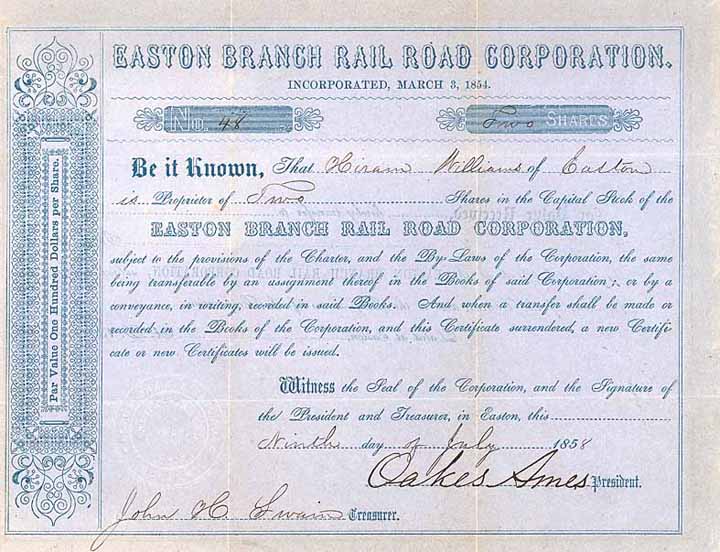 EASTON BRANCH RAIL ROAD CORPORATION.
INCORPORATED, MARCH 3, 1854.
No. 48
Two SHARES
Par Value One Hundred Dollars per Share.
Be it Known, That Hiram Williams of Easton
is Proprietor of Two Shares in the Capital Stock of the
EASTON BRANCH RAIL ROAD CORPORATION,
subject to the provisions of the Charter, and the By-Laws of the Corporation, the same
being transferable by an assignment thereof in the Books of said Corporation; or by a
conveyance, in writing, recorded in said Books. And when a transfer shall be made or
recorded in the Books of the Corporation, and this Certificate surrendered, a new Certifi-
cate or new Certificates will be issued.
Witness the Seal of the Corporation, and the Signature of
the President and Treasurer, in Easton, this
Ninth day of July 1858
Oakes Ames President.
John H. Swain Treasurer.